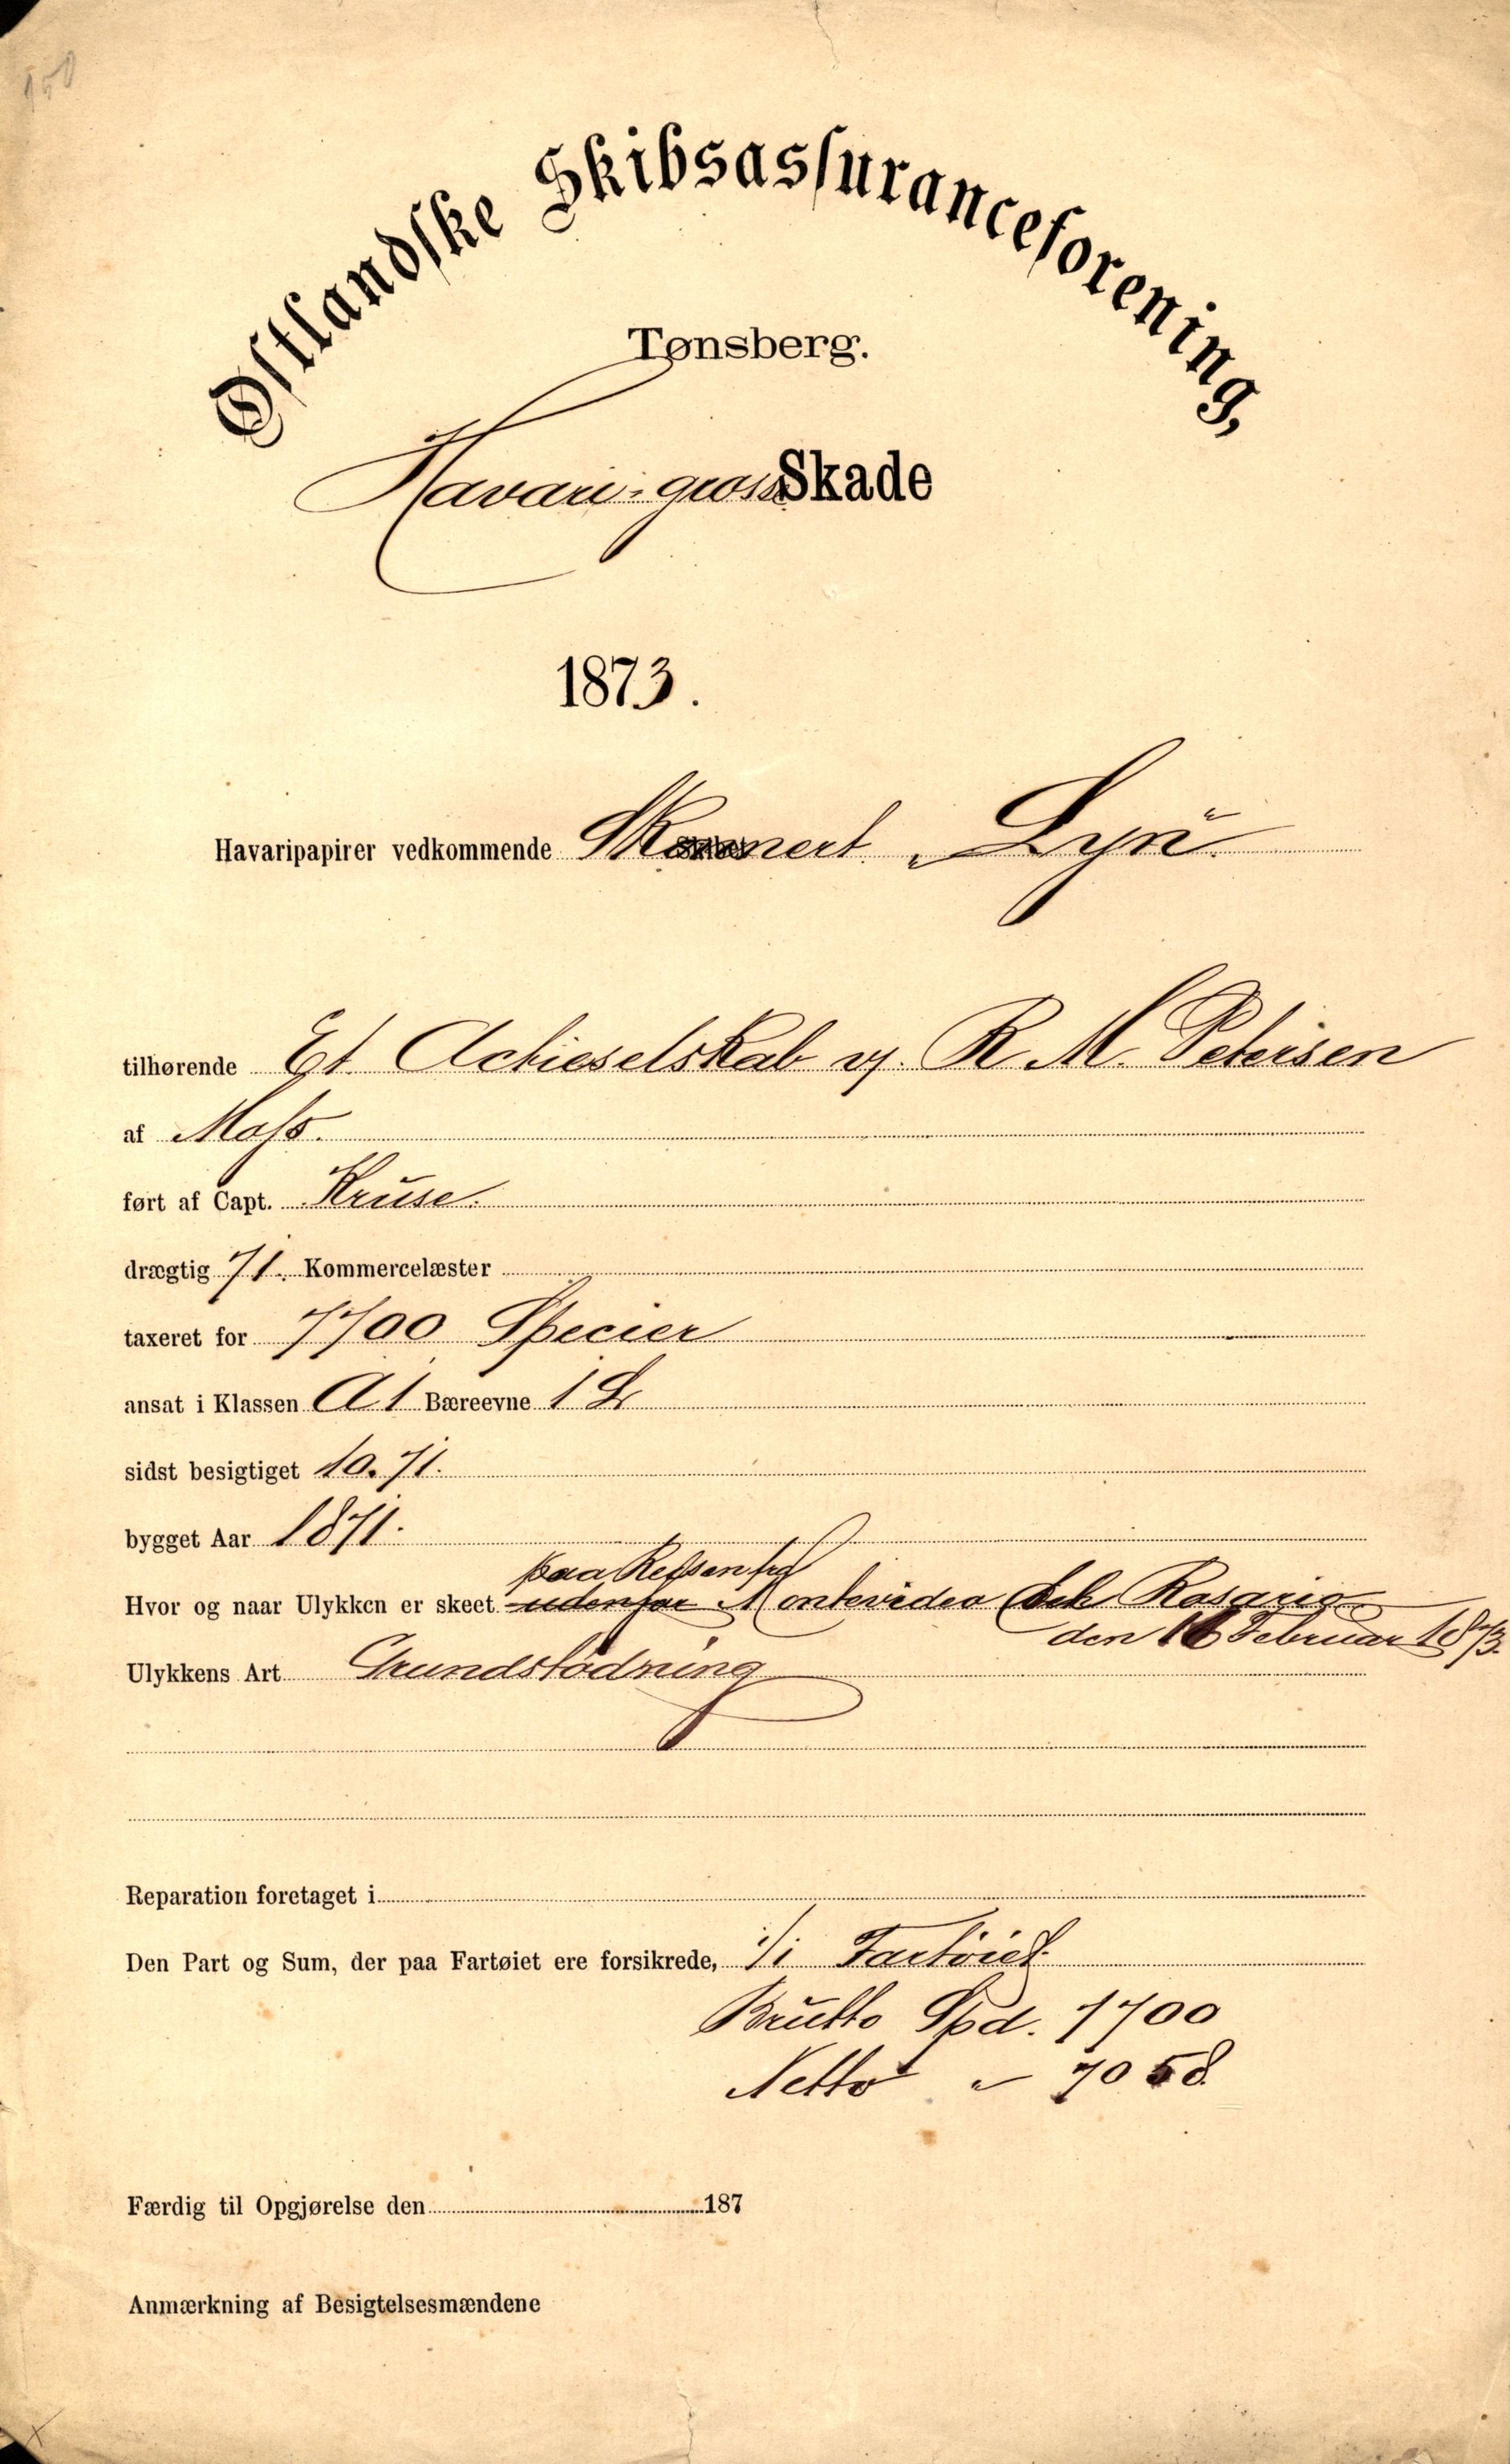 150
Østlandske Skibsassuranceforening,
Tønsberg.
Havari-grosse Skade
1873.
Havaripapirer vedkommende Skonnert "Lyn"
tilhørende Et Actieselskab v/ R. M. Petersen
af Moss.
ført af Capt. Kruse.
drægtig 71. Kommercelæster
taxeret for 7700 Specier
ansat i Klassen A1 Bæreevne 1 L
sidst besigtiget 10.71.
bygget Aar 1871.
paa Reisen fra
Hvor og naar Ulykken er skeet udenfor Montevideo och Rosario
den 16 Februar 1873.
Ulykkens Art Grundstødning
Reparation foretaget i
Den Part og Sum, der paa Fartøiet ere forsikrede, 1/1 Fartöiet
Brutto Spd. 7700
Netto " 7058
Færdig til Opgjørelse den 187
Anmærkning af Besigtelsesmændene